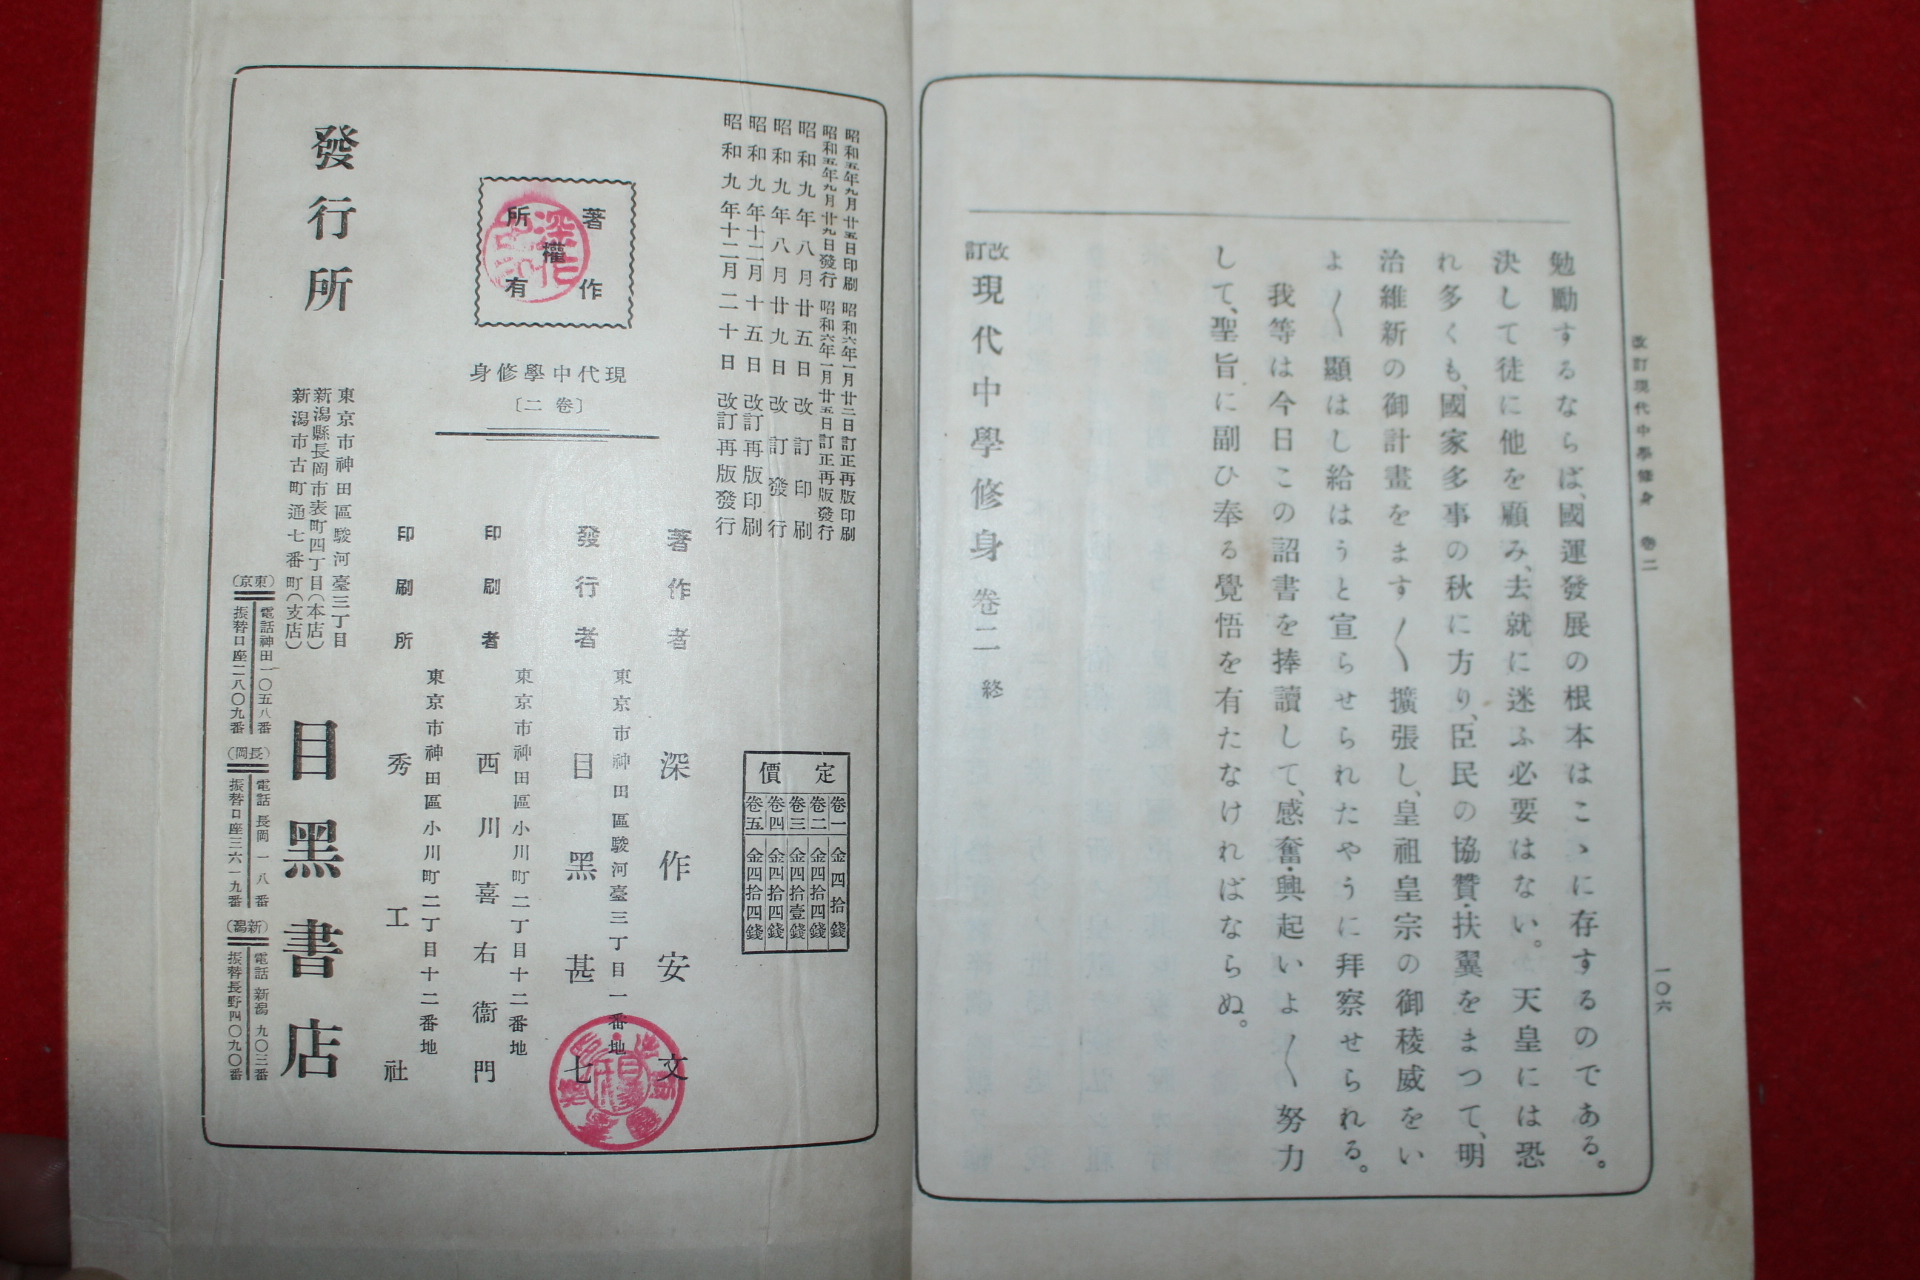 改訂現代中學修身 卷二
一〇六
勉勵するならば、國運發展の根本はこゝに存するのである。
決して徒に他を顧み、去就に迷ふ必要はない。天皇には恐
れ多くも、國家多事の秋に方り、臣民の協贊・扶翼をまつて、明
治維新の御計畫をます〱擴張し、皇祖皇宗の御稜威をい
よ〱顯はし給はうと宣らせられたやうに拜察せられる。
我等は今日この詔書を捧讀して、感奮・興起いよ〱努力
して、聖旨に副ひ奉る覺悟を有たなければならぬ。
改訂現代中學修身 卷二 終
昭和五年九月廿五日印刷 昭和六年一月廿二日訂正再版印刷
昭和五年九月廿九日發行 昭和六年一月廿五日訂正再版發行
昭和九年八月廿五日改訂印刷
昭和九年八月廿九日改訂發行
昭和九年十二月十五日改訂再版印刷
昭和九年十二月二十日改訂再版發行
定價
卷一 金四拾錢
卷二 金四拾四錢
卷三 金四拾壹錢
卷四 金四拾四錢
卷五 金四拾四錢
著作權所有
現代中學修身
〔卷二〕
著作者 深作安文
東京市神田區駿河臺三丁目一番地
發行者 目黑甚七
東京市神田區小川町二丁目十二番地
印刷者 西川喜右衞門
東京市神田區小川町二丁目十二番地
印刷所 秀工社
東京市神田區駿河臺三丁目
新潟縣長岡市表町四丁目(本店)
新潟市古町通七番町(支店)
發行所 目黑書店
(東京) 電話神田一〇五八番
振替口座二八〇九番
(長岡) 電話長岡一八番
振替口座三六一九番
(新潟) 電話新潟九〇三番
振替長野四〇九〇番